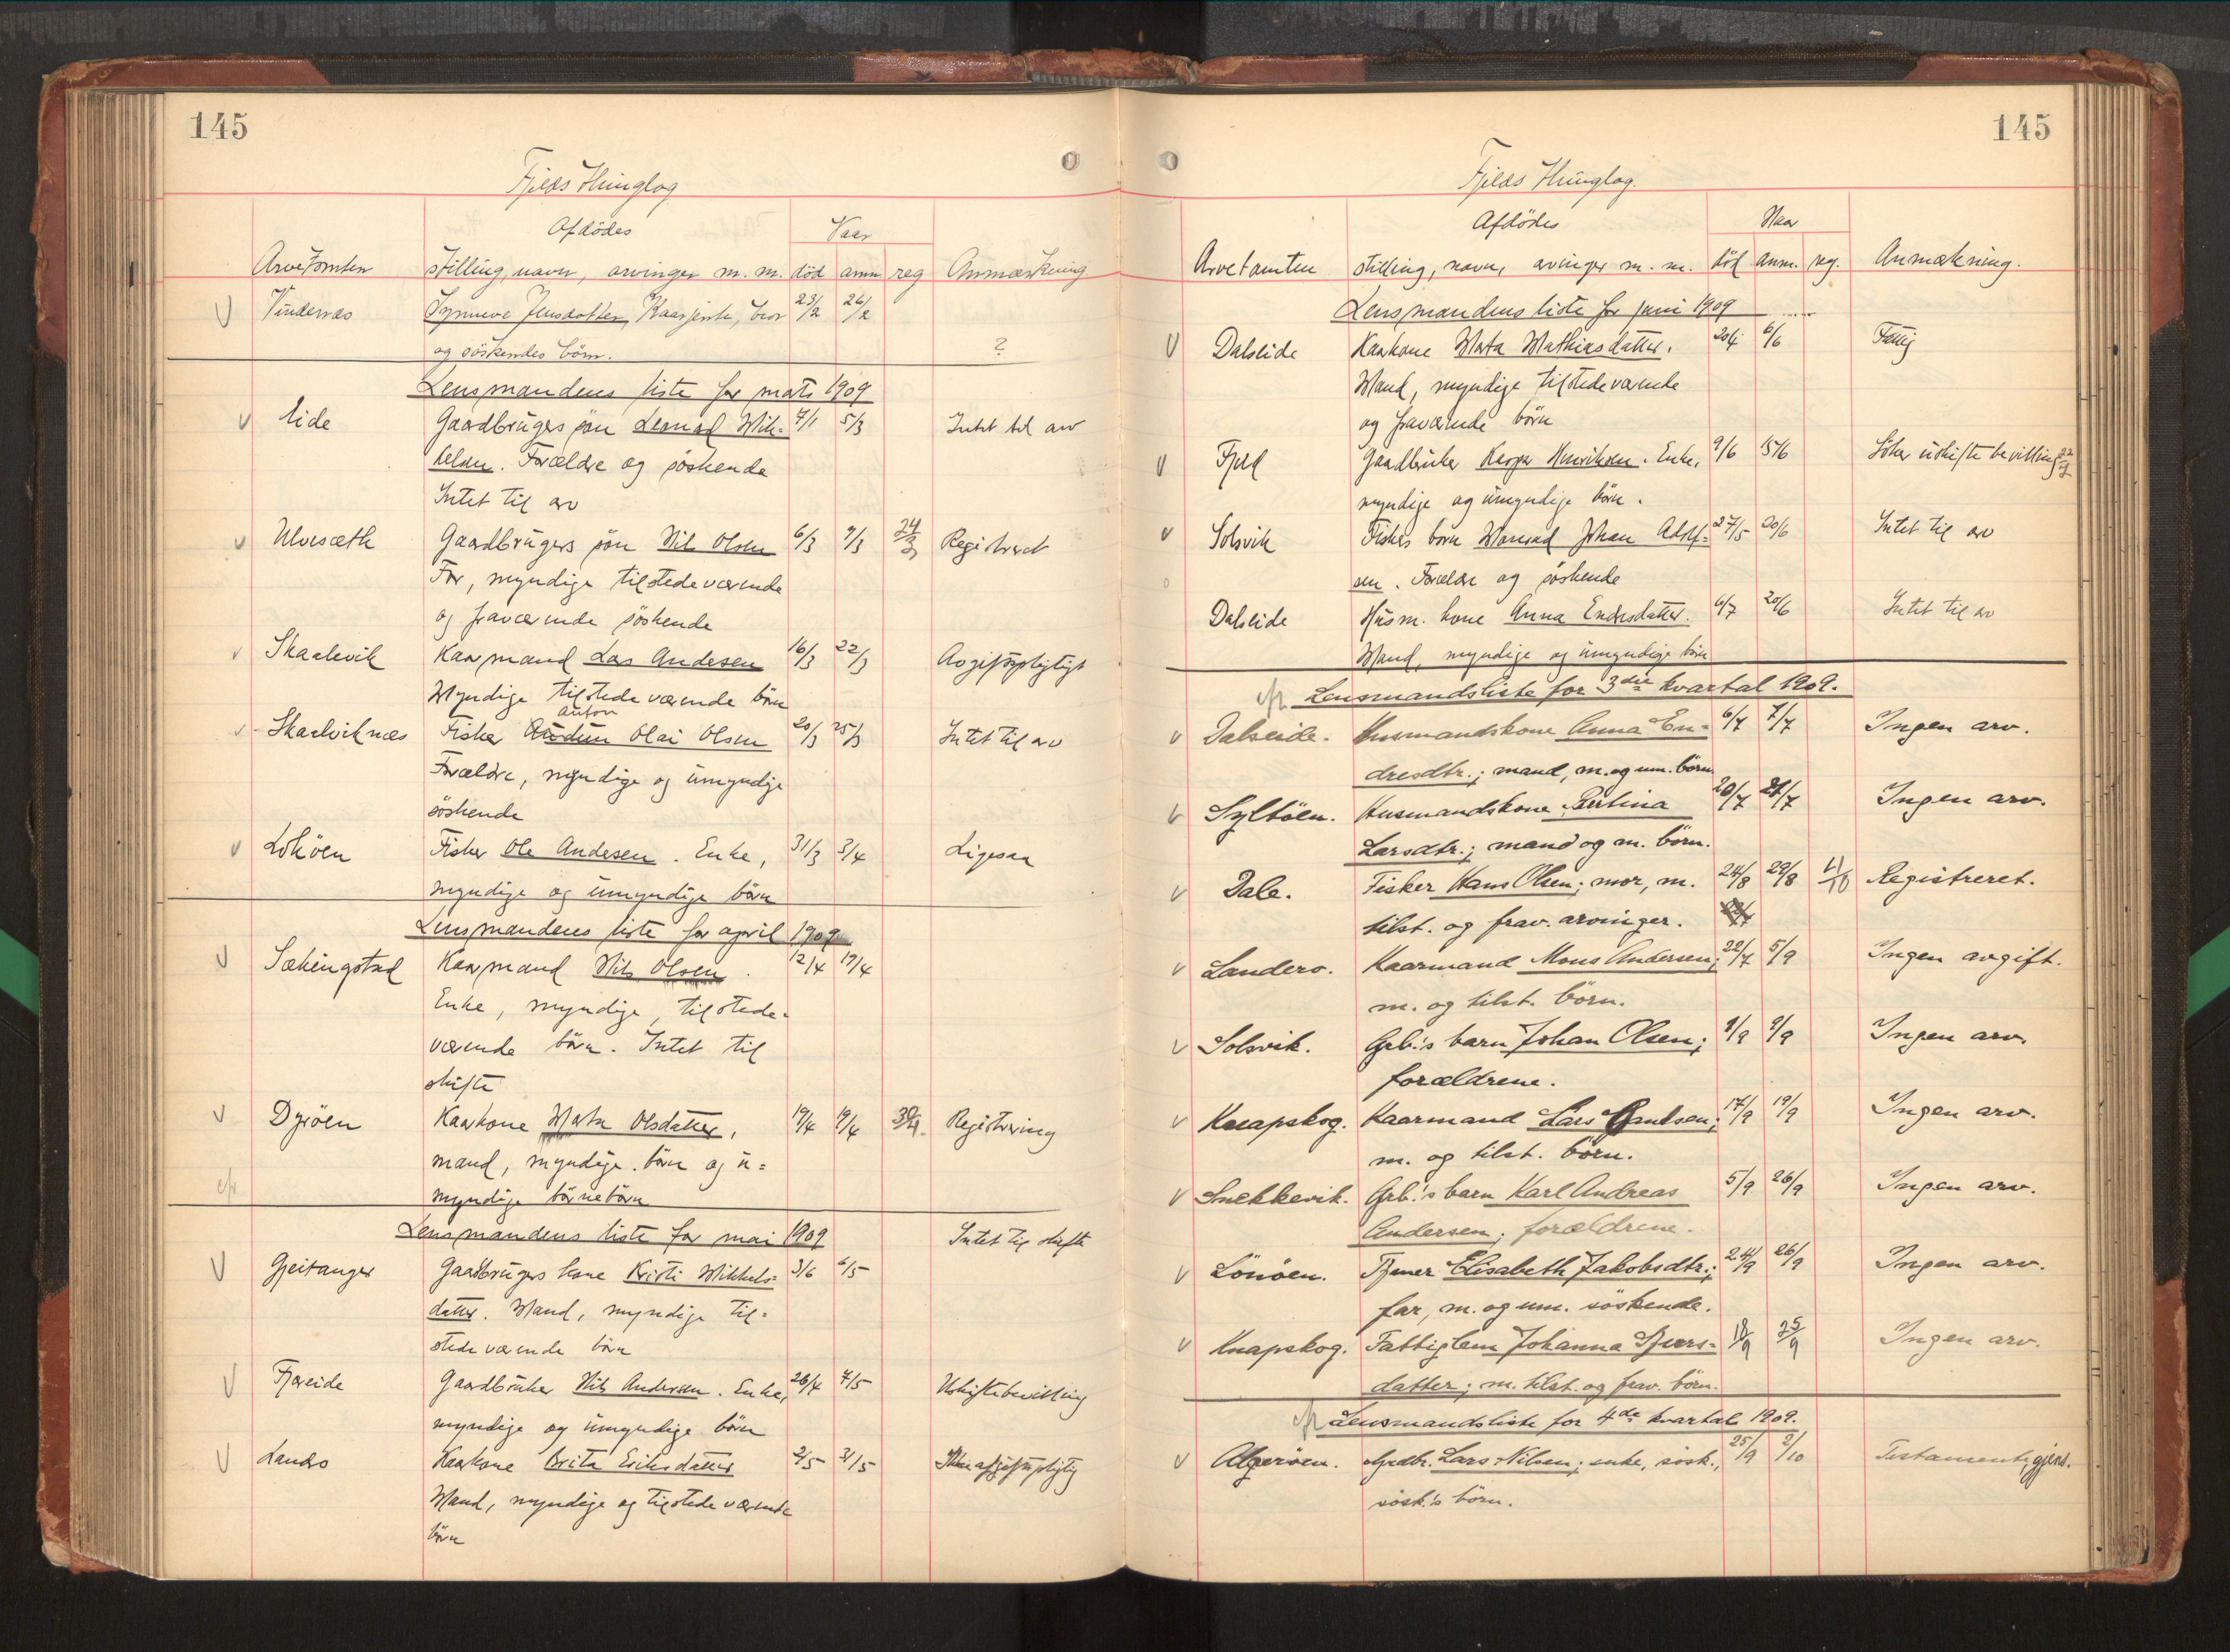 145
Fjelds Thinglag
Afdödes
Naar
Arvetomten stilling, navn, arvinger m. m. död anm reg Anmærkning
V Vindenæs Synneve Jensdatter, Kaarjente, bror 23/2 26/2
og söskendes börn. ?
Lensmandens liste for mars 1909
v Eide Gaardbrugers sön Leonard Mik= 7/1 5/3 Intet til arv
kelsen. Forældre og söskende
Intet til arv
v Ulvesæth Gaardbrugers sön Nils Olsen 6/3 9/3 24/3 Registreret
Far, myndige tilstedeværende
og fraværende söskende
v Skaalevik Kaarmand Lars Andersen 16/3 22/3 Avgiftspligtigt
Myndige tilstedeværende börn
anton
v Skaalviknæs Fisker Olai Olsen 20/3 25/3 Intet til arv
Forældre, myndige og umyndige
söskende
v Lokøen Fisker Ole Andersen. Enke, 31/3 3/4 Ligesaa
myndige og umyndige börn
Lensmandens liste for april 1909
V Sækingstad Kaarmand Nils Olsen. 12/4 19/4
Enke, myndige, tilstede=
værende börn. Intet til
skifte
v Dyröen Kaarkone Marta Olsdatter, 19/4 19/4 30/4 Registrering
mand, myndige börn og u=
myndige börnebörn
Lensmandens liste for mai 1909 Intet til skifte
V Gjeitanger Gaardbrugers kone Kristi Mikkels= 3/6 6/5
datter. Mand, myndige til=
stedeværende börn
V Fjæreide Gaardbruker Nils Andersen. Enke, 26/4 7/5 Uskiftebevilling
myndige og umyndige börn
V Landro Kaarkone Brita Eriksdatter 2/5 31/5 Ikke afgiftspligtig
Mand, myndige og tilstedeværende
börn
145
Fjelds Thinglag.
Afdödes
Naar
Arvetomten stilling, navn, arvinger m. m. död anm. reg. Anmærkning.
Lensmandens liste for juni 1909
V Dalseide Kaarkone Marta Mathiasdatter. 20/4 6/6 Fattig
Mand, myndige tilstedeværende
og fraværende börn
v Fjeld Gaardbruker Kasper Henriksen. Enke, 9/6 15/6 Söker uskiftebevilling 22/7
myndige og umyndige börn.
v Solsvik Fiskers barn Konrad Johan Adolf= 27/5 20/6 Intet til arv
sen. Forældre og söskende
Dalseide Husm. kone Anna Endresdatter. 6/7 20/6 Intet til arv
Mand, myndige og umyndige börn
cfr. Lensmandsliste for 3die kvartal 1909.
v Dalseide. Husmandskone Anna En= 6/7 7/7 Ingen arv.
dresdtr.; mand, m. og um. börn.
v Syltöen. Husmandskone Bertina 20/7 27/7 Ingen arv.
Larsdtr.; mand og m. börn.
v Dale. Fisker Hans Olsen; mor, m. 24/8 29/8 11/10 Registreret.
tilst. og frav. arvinger.
v Landero. Kaarmand Mons Andersen; 22/7 5/9 Ingen avgift.
m. og tilst. börn.
v Solsvik. Grb.'s barn Johan Olsen; 9/9 9/9 Ingen arv.
forældrene.
v Knapskog. Kaarmand Lars Gautsen; 17/9 19/9 Ingen arv.
m. og tilst. börn.
v Snekkevik. Grb.'s barn Karl Andreas 5/9 26/9 Ingen arv.
Andersen; forældrene.
v Lönöen. Tjener Elisabeth Jakobsdtr.; 24/9 26/9 Ingen arv.
far, m. og um. söskende.
v Knapskog. Fattiglem Johanna Sjurs= 18/9 25/9 Ingen arv.
datter; m. tilst. og frav. börn.
cfr. Lensmandsliste for 4de kvartal 1909.
v Algeröen. Grdbr. Lars Nilsen; enke, sösk., 25/9 2/10 Testament, gjens.
sösk.'s börn.